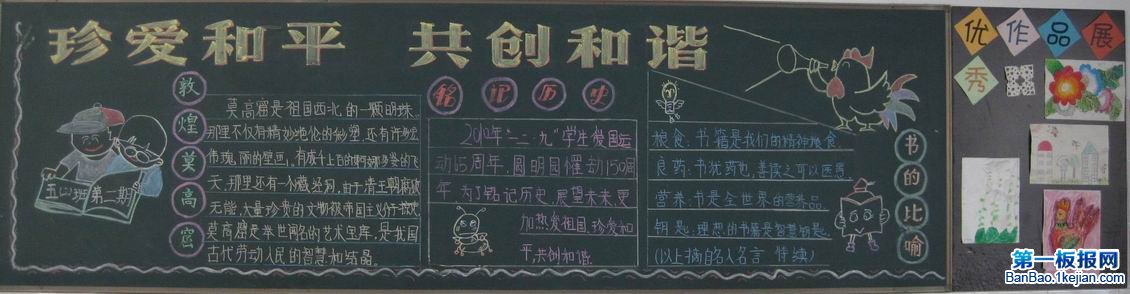 珍爱和平 共创和谐
敦煌莫高窟
莫高窟是祖国西北的一颗明珠.
那里不仅有精妙绝伦的彩塑,还有许多宏
伟瑰丽的壁画,有成千上百的婀娜多姿的飞
天,那里还有一个藏经洞,由于清王朝腐败
无能,大量珍贵的文物被帝国主义
莫高窟是举世闻名的艺术宝库,是我国
古代劳动人民的智慧和结晶.
五(二)班第二期
铭记历史
2010年"一二·九"学生爱国运
动75周年,圆明园罹劫150周
年,为了铭记历史,展望未来,更
加热爱祖国,珍爱和
平,共创和谐.
书的比喻
粮食:书籍是我们的精神粮食.
良药:书犹药也,善读之可以医愚
营养:书是全世界的营养品.
钥匙:理想的书籍是智慧钥匙
(以上摘自名人名言 待续)
优秀作品展
第一板报网
BanBao.1kejian.com